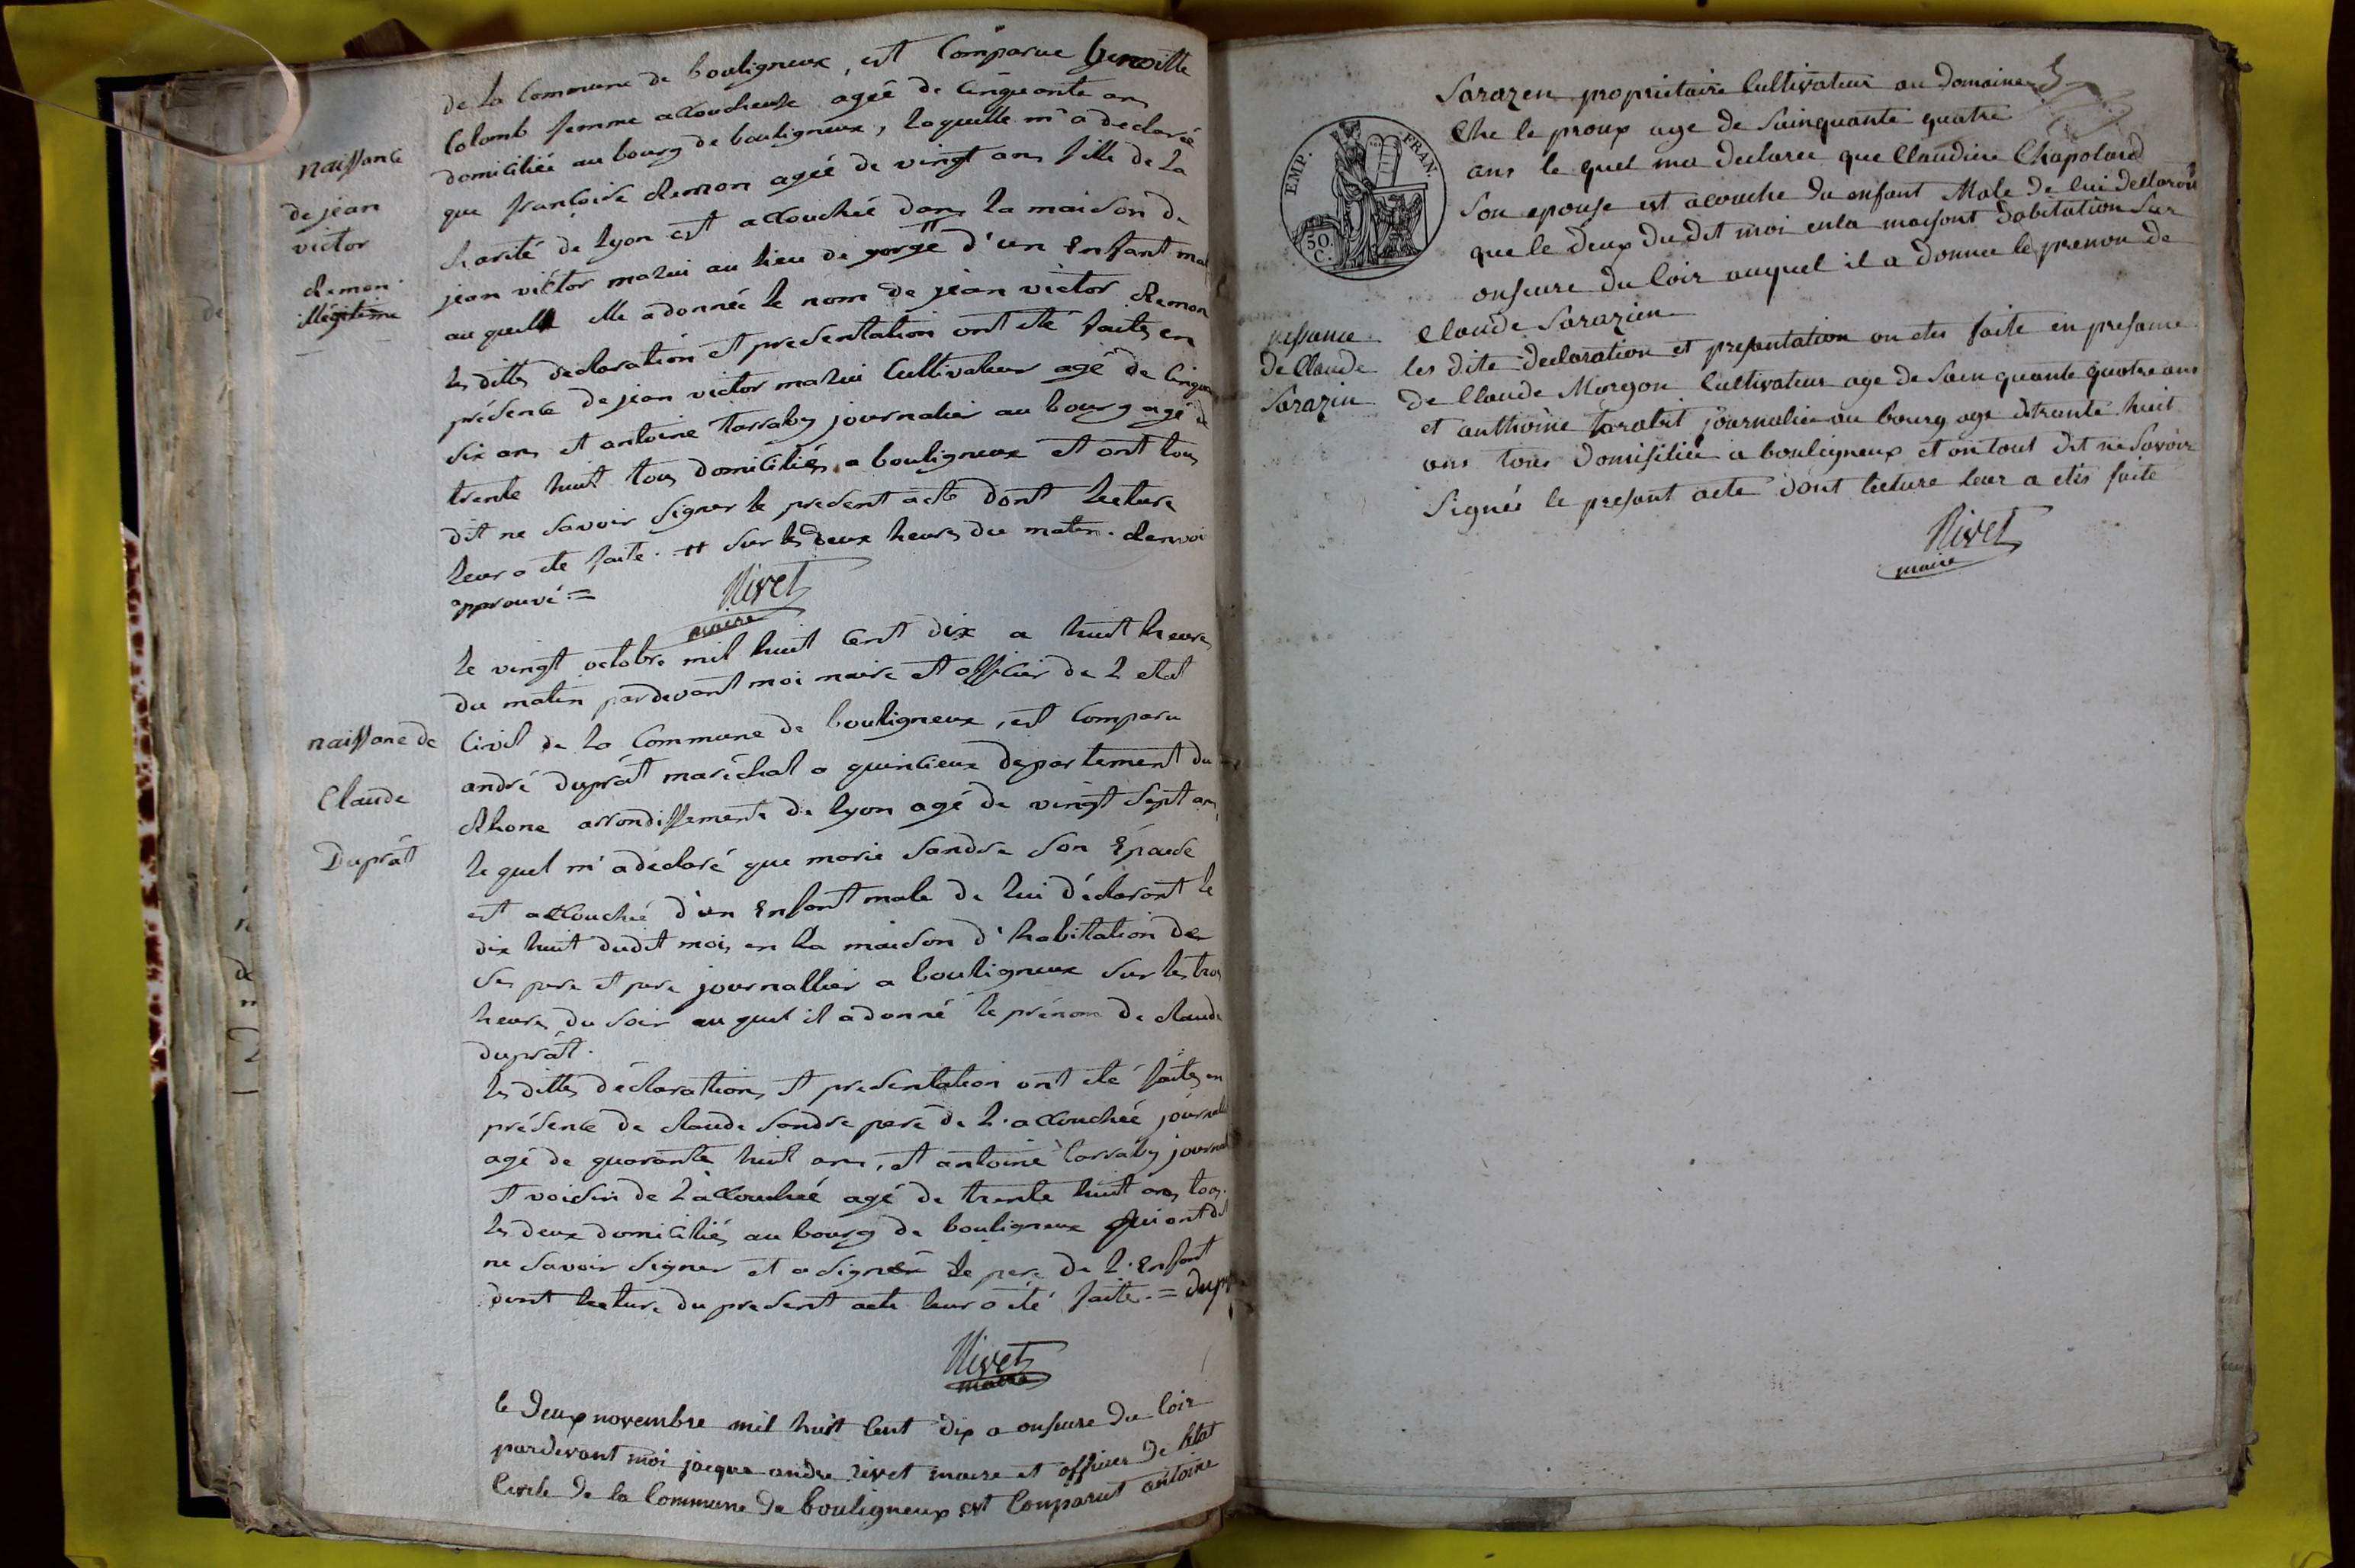 de la Commune de bouligneux, est Comparue benoitte
Colomb femme accoucheuse agée de Cinquante ans
domiciliée au bourg de bouligneux, laquelle m'a declaré
que francoise Remon agée de vingt ans fille de la
charité de lyon est accouchée dans la maison de
jean victor mazui au lieu de gorge # d'un Enfant mal
au quelle elle a donnée le nom de jean victor Remon
les dittes declaration et presentation ont eté faites en
présence de jean victor mazui Cultivateur agé de Cinquan
six ans et antoine tarraby journalier au bourg agé de
trente huit tous domiciliés a bouligneux et ont tous
dit ne savoir signer le present acte dont lecture
leur a ete faite. # sur les deux heures du matin. Renvoi
approuvé =
Rivet
maire
naissance
de jean
victor
Remon
illégitime
le vingt octobre mil huit Cent dix a huit heures
du matin pardevant moi maire et officier de l etat
Civil de la Commune de bouligneux, est Comparu
andré duprat maréchal a quincieux departement du
Rhone arrondissement de lyon agé de vingt sept ans,
le quel m'a déclaré que marie sandre son Épouse
est accouchée d'un Enfant male de lui déclarant le
dix huit dudit mois en la maison d'habitation de
ses pere et pere journallier a bouligneux sur les trois
heures du soir au quel il a donné le prénom de claude
duprat.
les dittes déclarations et presentation ont eté faites en
présence de claude sandre pere de l'accouchée journal
agé de quarante huit ans, et antoine tarraby journal
et voisin de l'accouchée agé de trente huit ans tous
les deux domiciliés au bourg de bouligneux qui ont dit
ne savoir signer et a signé le pere de l'Enfant
dont lecture du present acte leur a été faite. = dupr
Rivet
maire
naissane de
Claude
Duprat
le deux novembre mil huit Cent dix a onseure du soir
pardevant moi jacque andre rivet maire et officier de létat
Civile de la Commune de bouligneux est Comparut antoine
EMP. FRAN.
50.
C.
Sarazen propriétaire Cultivateur au domaine
Che le proux age de Sainquante quatre
ans le quel ma declaree que Claudine Chapoland
Son epouse est acouche du enfant Male de lui declarant
que le deux du dit moi enla maisont dabitation Sur
onseure du soir auquel il a donnee le prenon de
Claude Sarazien
les dite declaration et presantation on etes faite en presance
de Claude Morgon Cultivateur age de Sain quante quatre ans
et anthoine tarabit journalier au bourg age detrante huit
ans tous domisiliée a bouligneux et on tout dit ne Savoir
Signés le presant acte dont lecture leur a etés faite
Rivet
maire
nessance
de Claude
Sarazin